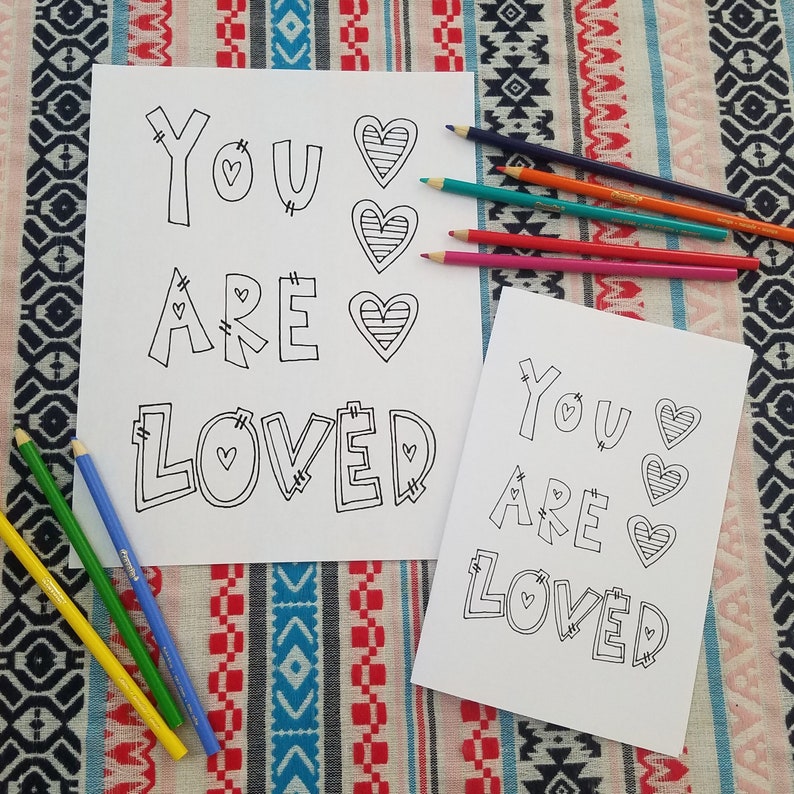 You
ARE
LOVED
You
ARE
LOVED